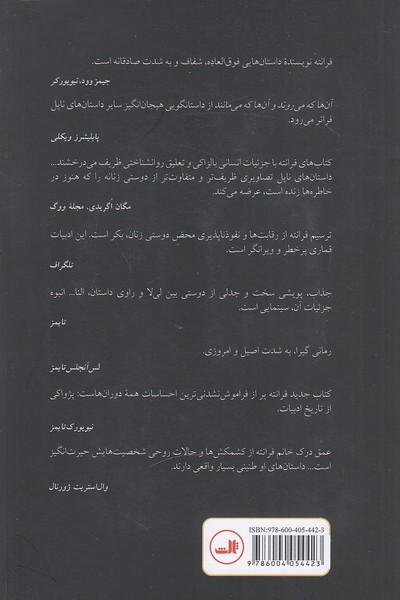 فرانته نویسندهٔ داستان‌هایی فوق‌العاده، شفاف و به شدت صادقانه است.
جیمز وود، نیویورکر
آن‌ها که می‌روند و آن‌ها که می‌مانند از داستانگویی هیجان‌انگیز سایر داستان‌های ناپل
فراتر می‌رود.
پابلیشرز ویکلی
کتاب‌های فرانته با جزئیات انسانی بالزاکی و تعلیق روانشناختی ظریف می‌درخشند...
داستان‌های ناپل تصاویری ظریف‌تر و متفاوت‌تر از دوستی زنانه را که هنوز در
خاطره‌ها زنده است، عرضه می‌کند.
مگان اُگریدی، مجلهٔ ووگ
ترسیم فرانته از رقابت‌ها و نفوذناپذیری محض دوستی زنان، بکر است. این ادبیات
قماری پرخطر و ویرانگر است.
تلگراف
جذاب، پویشی سخت و جدلی از دوستی بین لی‌لا و راوی داستان، النا... انبوه
جزئیات آن، سینمایی است.
تایمز
رمانی گیرا، به شدت اصیل و امروزی.
لس‌آنجلس تایمز
کتاب جدید فرانته پر از فراموش‌نشدنی‌ترین احساسات همهٔ دوران‌هاست: پژواکی
از تاریخ ادبیات.
نیویورک تایمز
عمق درک خانم فرانته از کشمکش‌ها و حالات روحی شخصیت‌هایش حیرت‌انگیز
است... داستان‌های او طنینی بسیار واقعی دارند.
وال‌استریت ژورنال
ISBN:978-600-405-442-3
9 786004 054423
ثالث